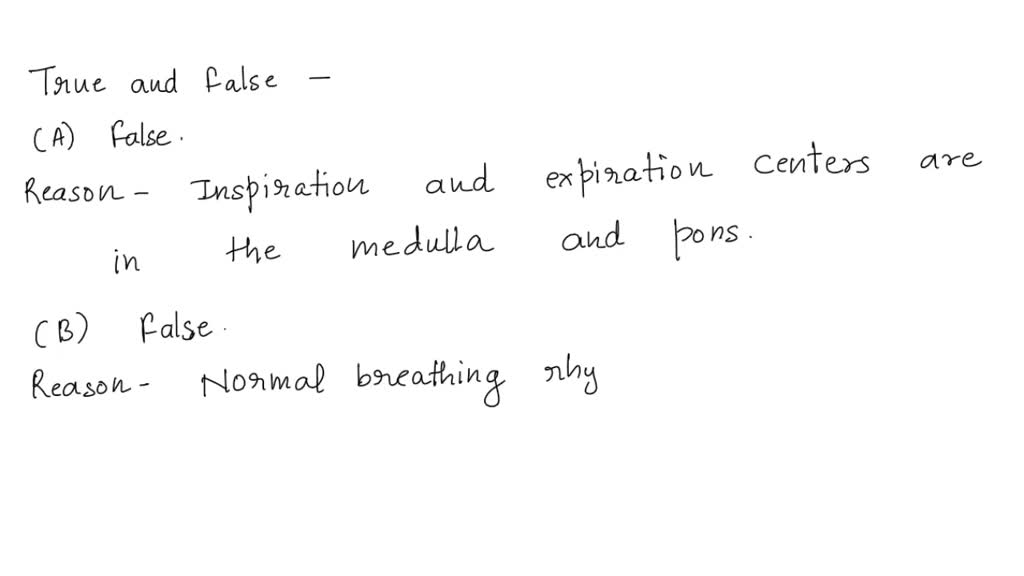 True and false -
(A) false.
Reason - Inspiration and expiration centers are
in the medulla and pons.
(B) false.
Reason - Normal breathing rhy